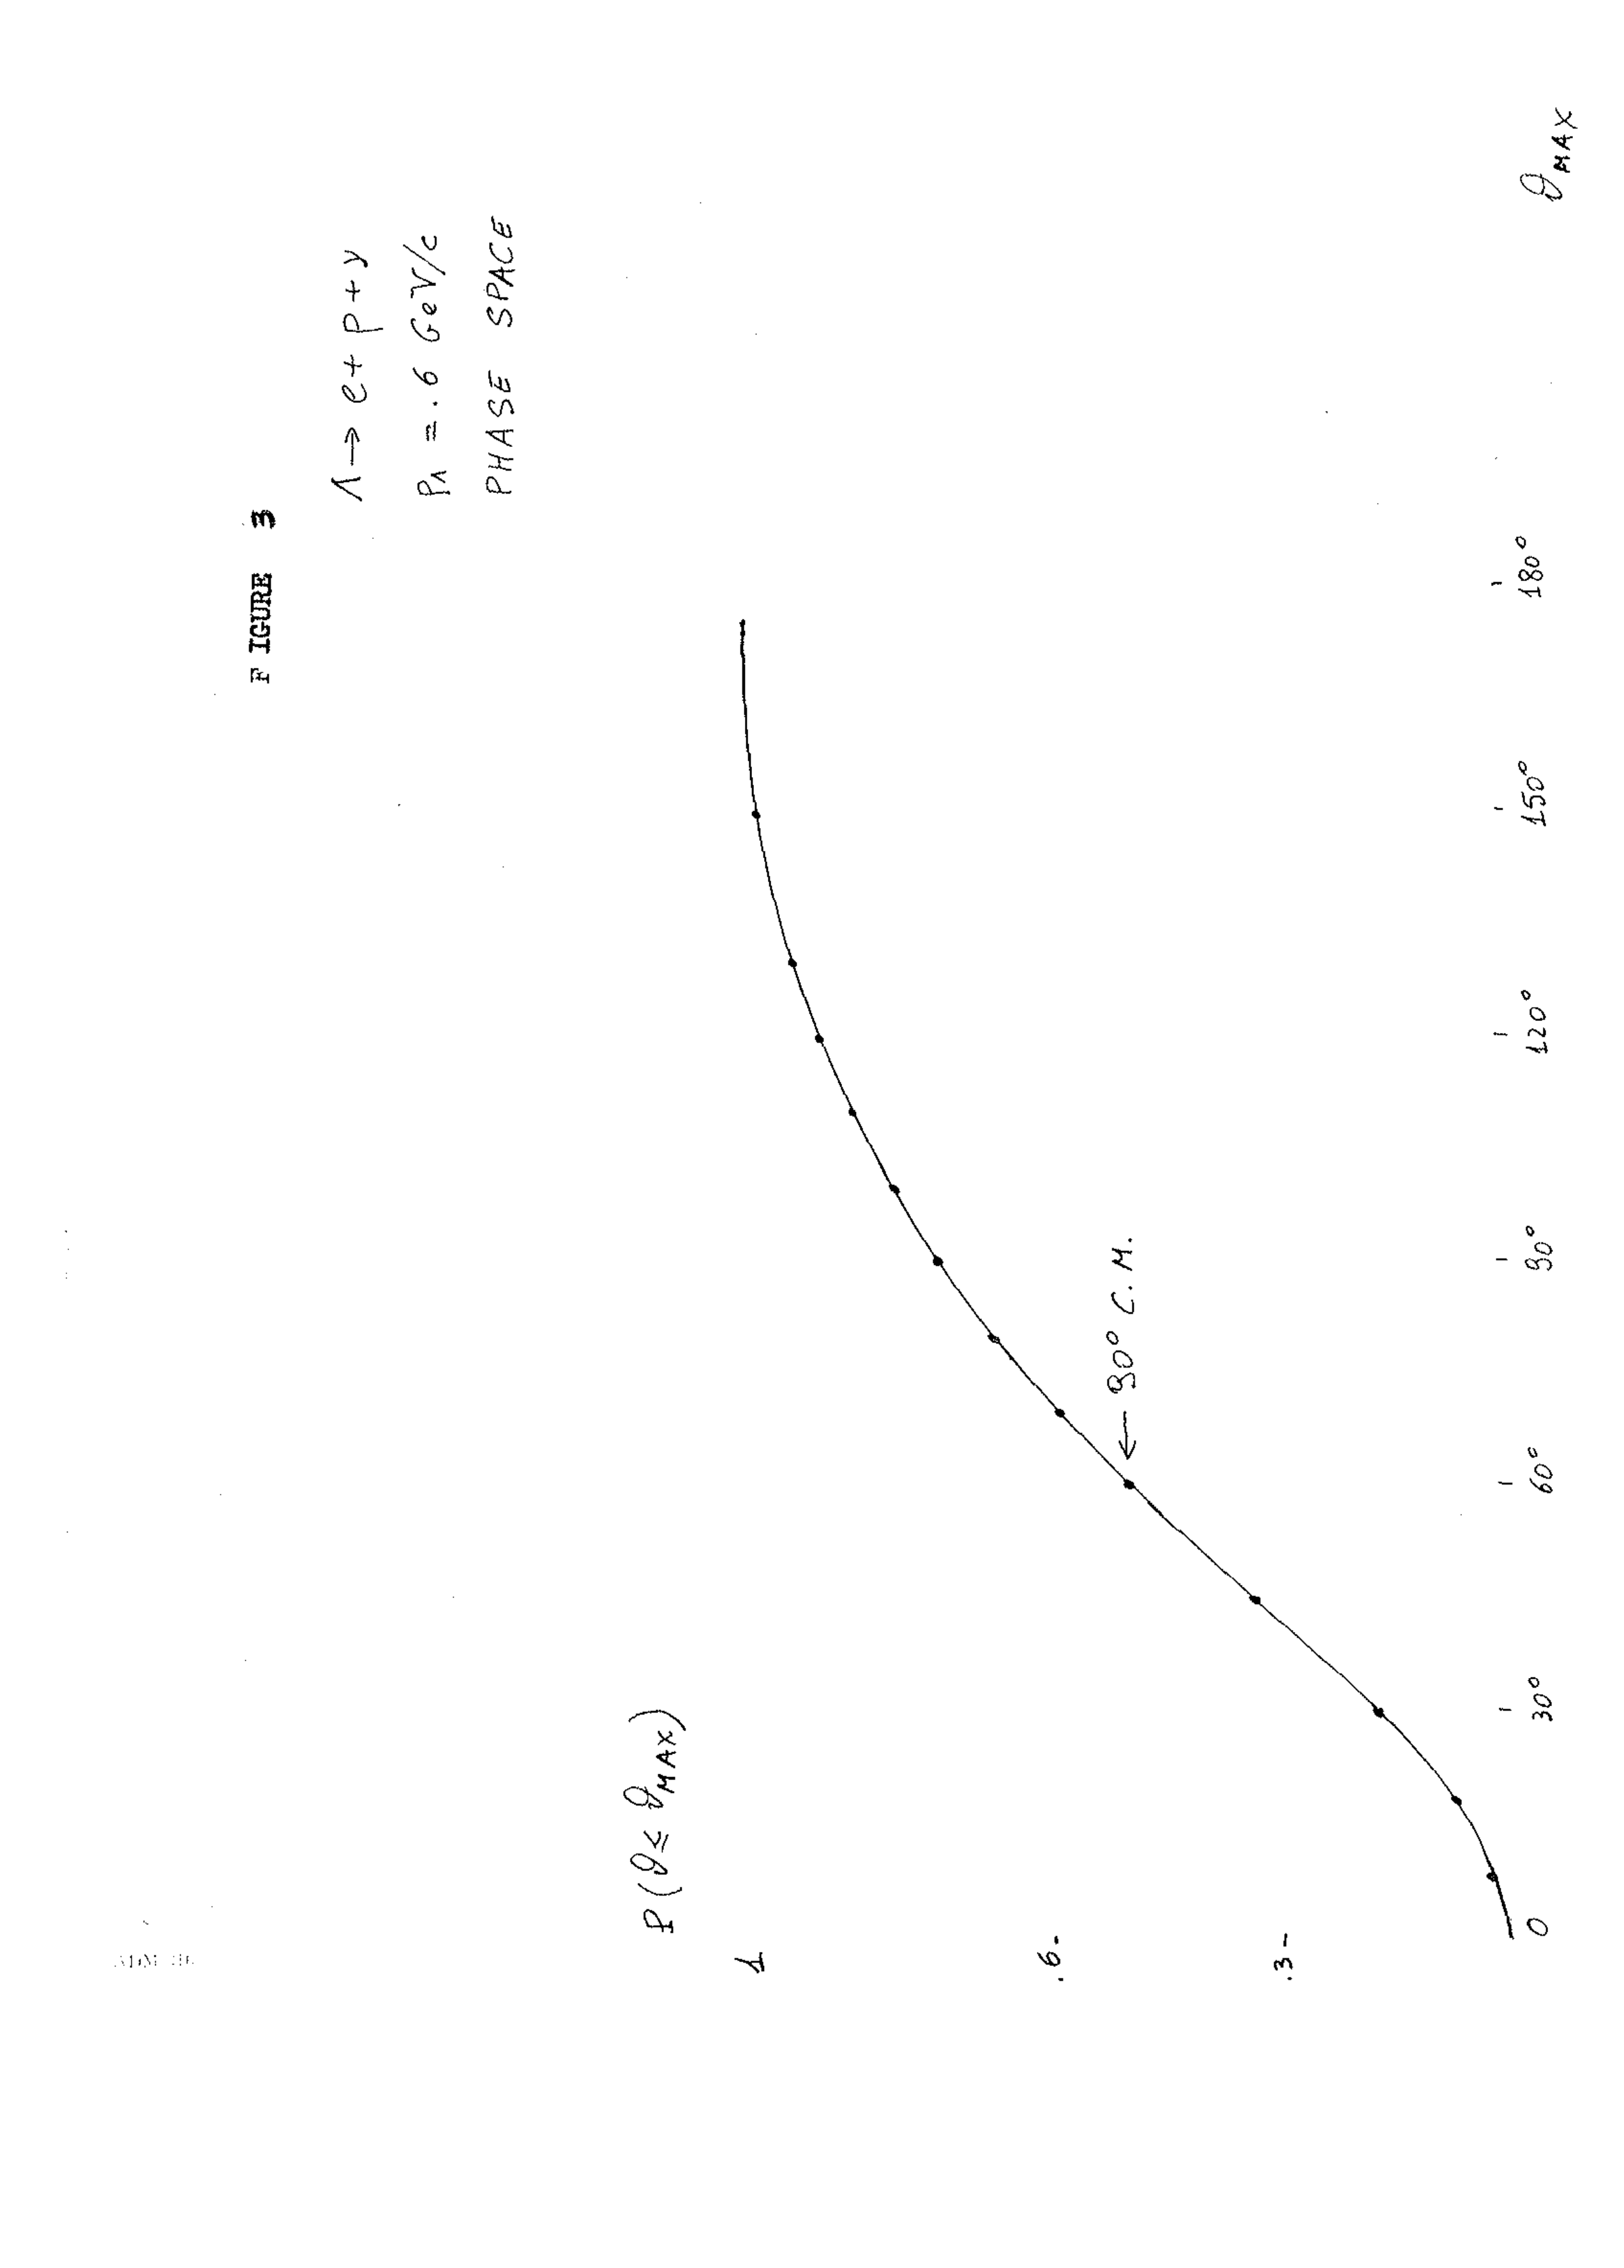 FIGURE 3
Λ → e + p + ν
pΛ = .6 GeV/c
PHASE SPACE
P (ϑ ≤ ϑMAX)
1
.6-
.3-
← 90° C.M.
0
30°
60°
90°
120°
150°
180°
ϑMAX